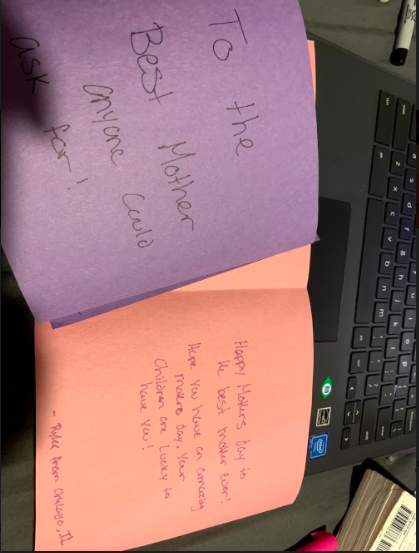 To the
Best Mother
anyone could
ask for!
Happy Mothers Day to
the best mother ever!
Hope you have an amazing
mothers day. Your
children are lucky to
have you!
- from Chicago, IL